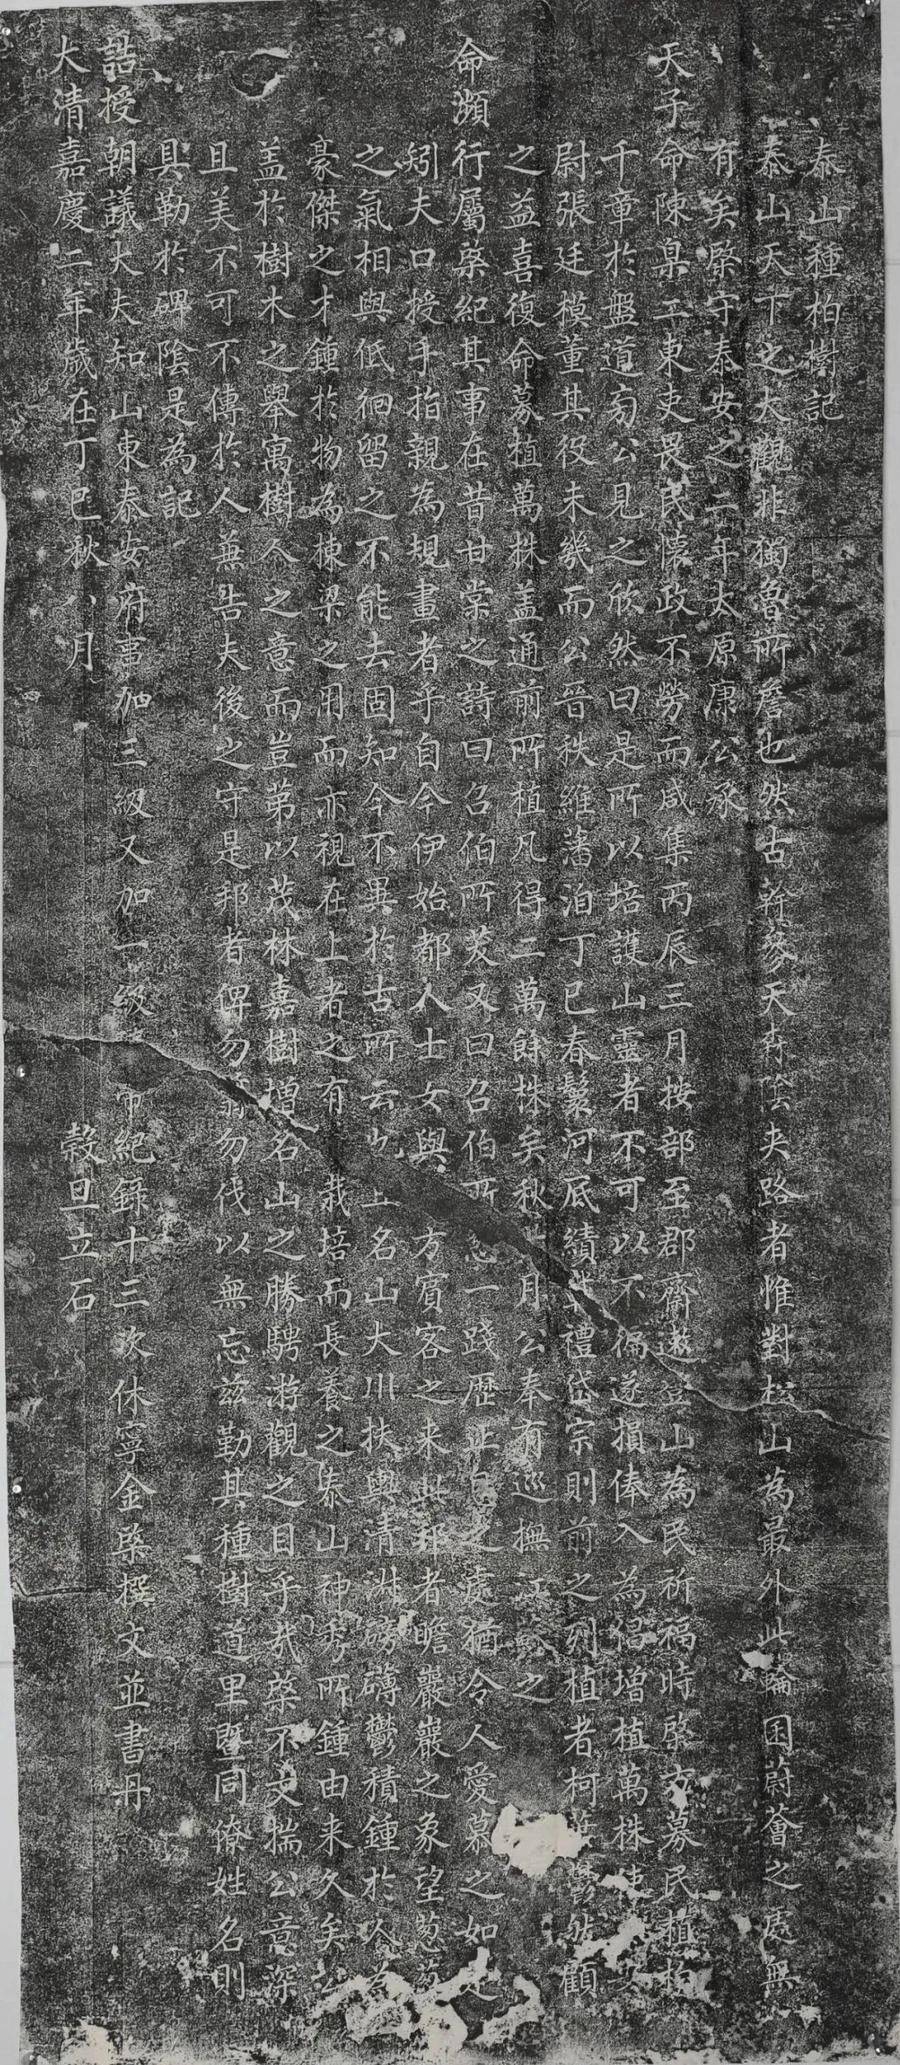 泰山種柏樹記
泰山天下之大觀非獨魯所詹也然古幹參天森陰夾路者惟對松山為最外此輪囷蔚薈之處無
有矣棨守泰安之二年太原康公承
天子命陳臬三東吏畏民懷政不勞而咸集丙辰三月按部至郡齋遨登山為民祈福時棨方募民植柏
千章於盤道旁公見之欣然曰是所以培護山靈者不可以不徧遂損俸入為倡增植萬株
尉張廷模董其役未幾而公晉秩維藩洎丁巳春鬃河底績禮岱宗則前之列植者柯鬱然顧
之益喜復命募植萬株盖通前所植凡得二萬餘株矣秋月公奉有巡撫江之
命瀕行屬棨紀其事在昔甘棠之詩曰召伯所茇又曰召伯所憩一踐歷止息之處猶令人愛慕之如是
矧夫口授手指親為規畫者乎自今伊始都人士女與方賓客之来此邦者瞻巖巖之象望葱葱
之氣相與低徊留之不能去固知今不異於古所云也名山大川扶輿清淑磅礴鬱積鍾於人為
豪傑之才鍾於物為棟梁之用而亦視在上者之有栽培而長養之泰山神秀所鍾由来久矣
盖於樹木之舉寓樹人之意而豈第以茂林嘉樹增名山之勝騁游觀之目乎哉棨不文揣公意深
且美不可不傳於人兼告夫後之守是邦者俾勿翦勿伐以無忘兹勤其種樹道里曁同僚姓名則
具勒於碑陰是為記
誥授朝議大夫知山東泰安府事加三級又加一級紀錄十三次休寧金棨撰文並書丹
大清嘉慶二年歲在丁巳秋八月 穀旦立石